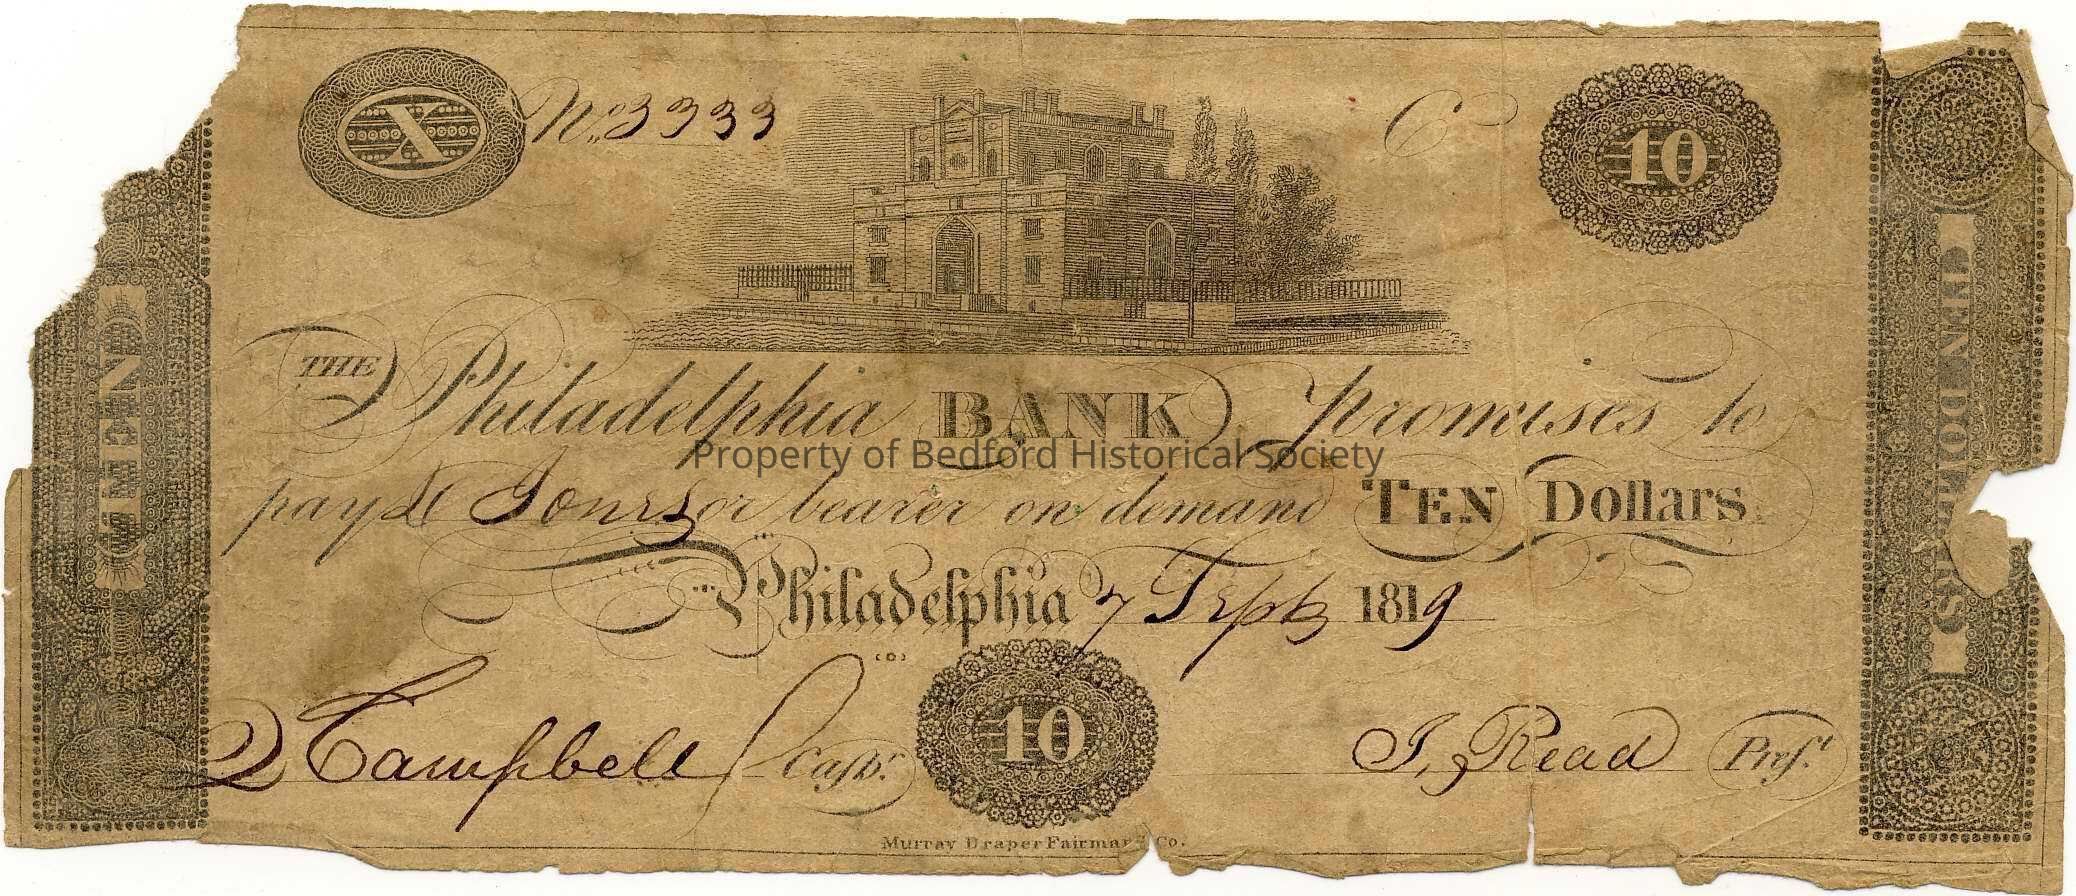 X
No. 3333
C
10
THE Philadelphia BANK promises to
pay D Jones or bearer on demand TEN Dollars
Philadelphia 7 Septr 1819
D Campbell Cashr.
10
J. Read Prest.
Murray Draper Fairman & Co.
TEN DOLLARS
Property of Bedford Historical Society